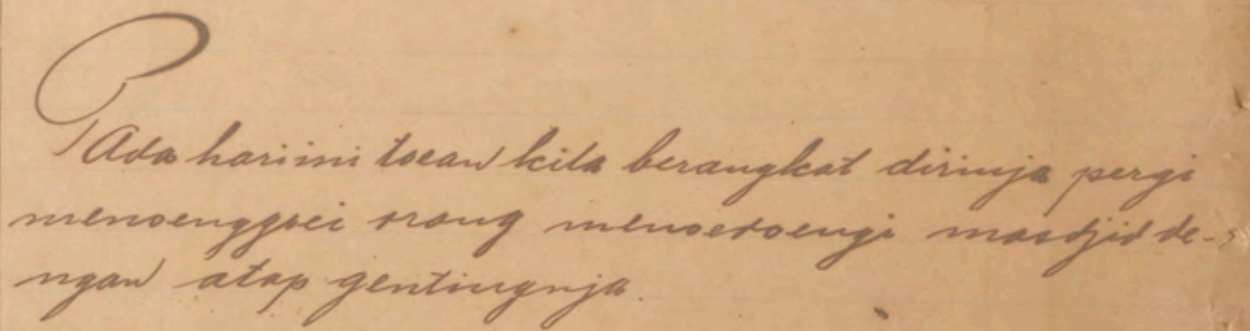 PAda hari ini toean kita berangkat dirinja pergi
menoenggoei orang menoedoengi masdjid de-
ngan atap gentingnja.